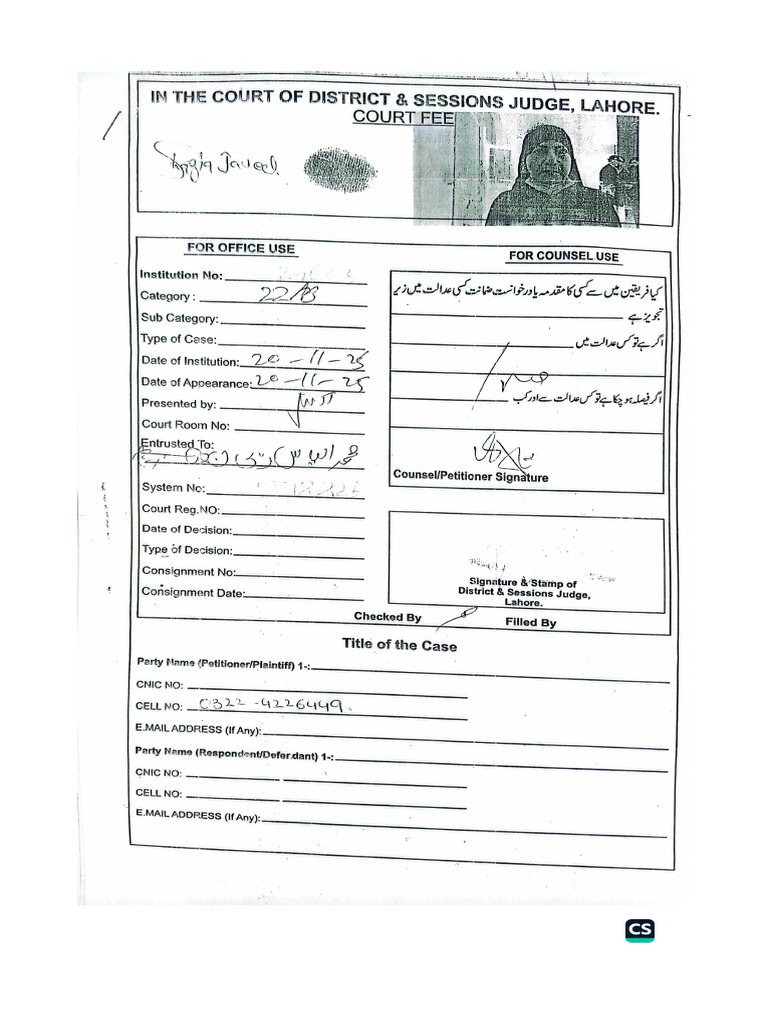 IN THE COURT OF DISTRICT & SESSIONS JUDGE, LAHORE.
COURT FEE
Javeed
FOR OFFICE USE
Institution No:
Category : 22/B
Sub Category:
Type of Case:
Date of Institution: 20-11-25
Date of Appearance: 20-11-25
Presented by:
Court Room No:
Entrusted To:
System No:
Court Reg.NO:
Date of Decision:
Type of Decision:
Consignment No:
Consignment Date:
FOR COUNSEL USE
کیا فریقین میں سے کسی کا مقدمہ یا درخواست ضمانت کسی عدالت میں زیر
تجویز ہے
اگر ہے تو کس عدالت میں
اگر فیصلہ ہو چکا ہے تو کس عدالت سے اور کب
Counsel/Petitioner Signature
Signature & Stamp of
District & Sessions Judge,
Lahore.
Checked By Filled By
Title of the Case
Party Name (Petitioner/Plaintiff) 1-:
CNIC NO:
CELL NO: 0322-4226449.
E.MAIL ADDRESS (If Any):
Party Name (Respondent/Defendant) 1-:
CNIC NO:
CELL NO:
E.MAIL ADDRESS (If Any):
CS